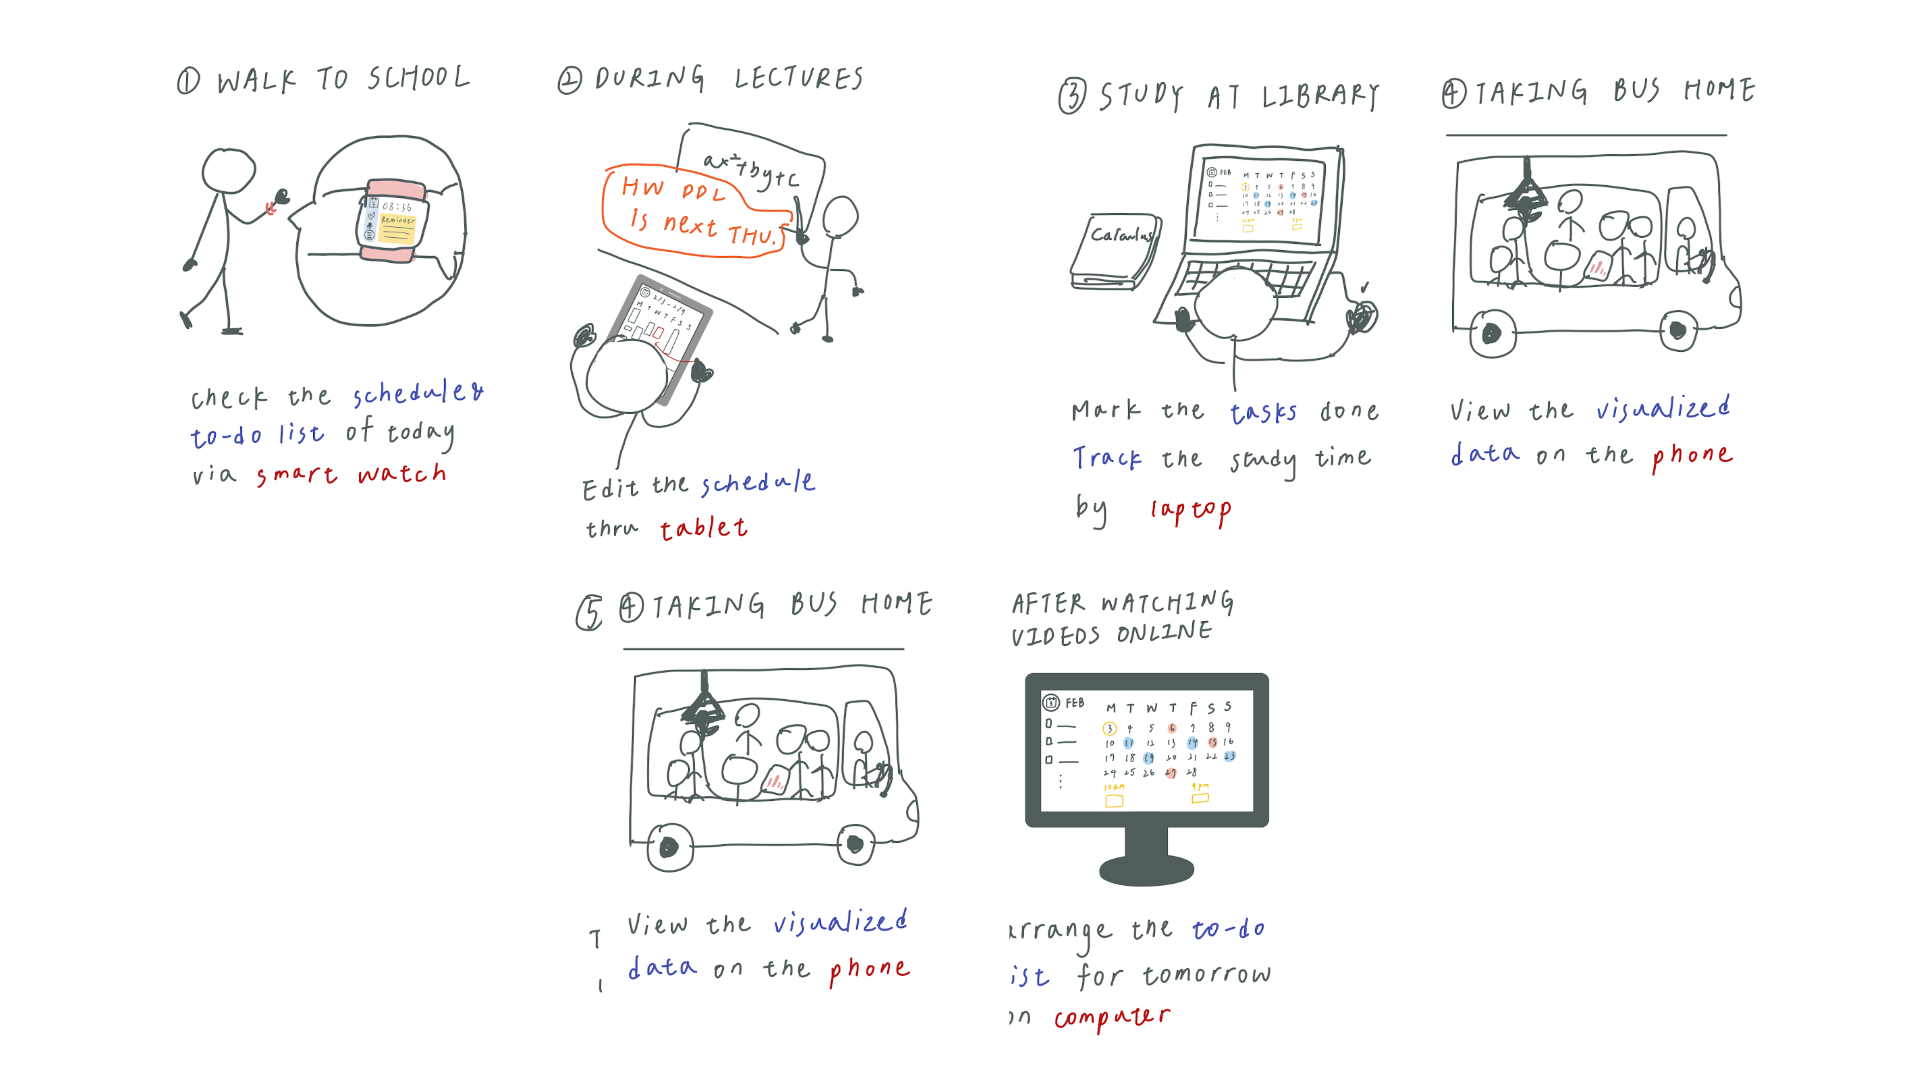 ① WALK TO SCHOOL
08:36
Reminder
check the schedule &
to-do list of today
via smart watch
② DURING LECTURES
ax²+by+c
HW DDL
is next THU.
2/3-2/9
M T W T F S S
Edit the schedule
thru tablet
③ STUDY AT LIBRARY
Calculus
FEB
M T W T F S S
3 4 5 6 7 8 9
10 11 12 13 14 15 16
17 18 19 20 21 22 23
24 25 26 27 28
10am 9pm
Mark the tasks done
Track the study time
by laptop
④ TAKING BUS HOME
View the visualized
data on the phone
⑤ ④ TAKING BUS HOME
T View the visualized
data on the phone
AFTER WATCHING
VIDEOS ONLINE
FEB
M T W T F S S
3 4 5 6 7 8 9
10 11 12 13 14 15 16
17 18 19 20 21 22 23
24 25 26 27 28
10am 9pm
arrange the to-do
ist for tomorrow
on computer